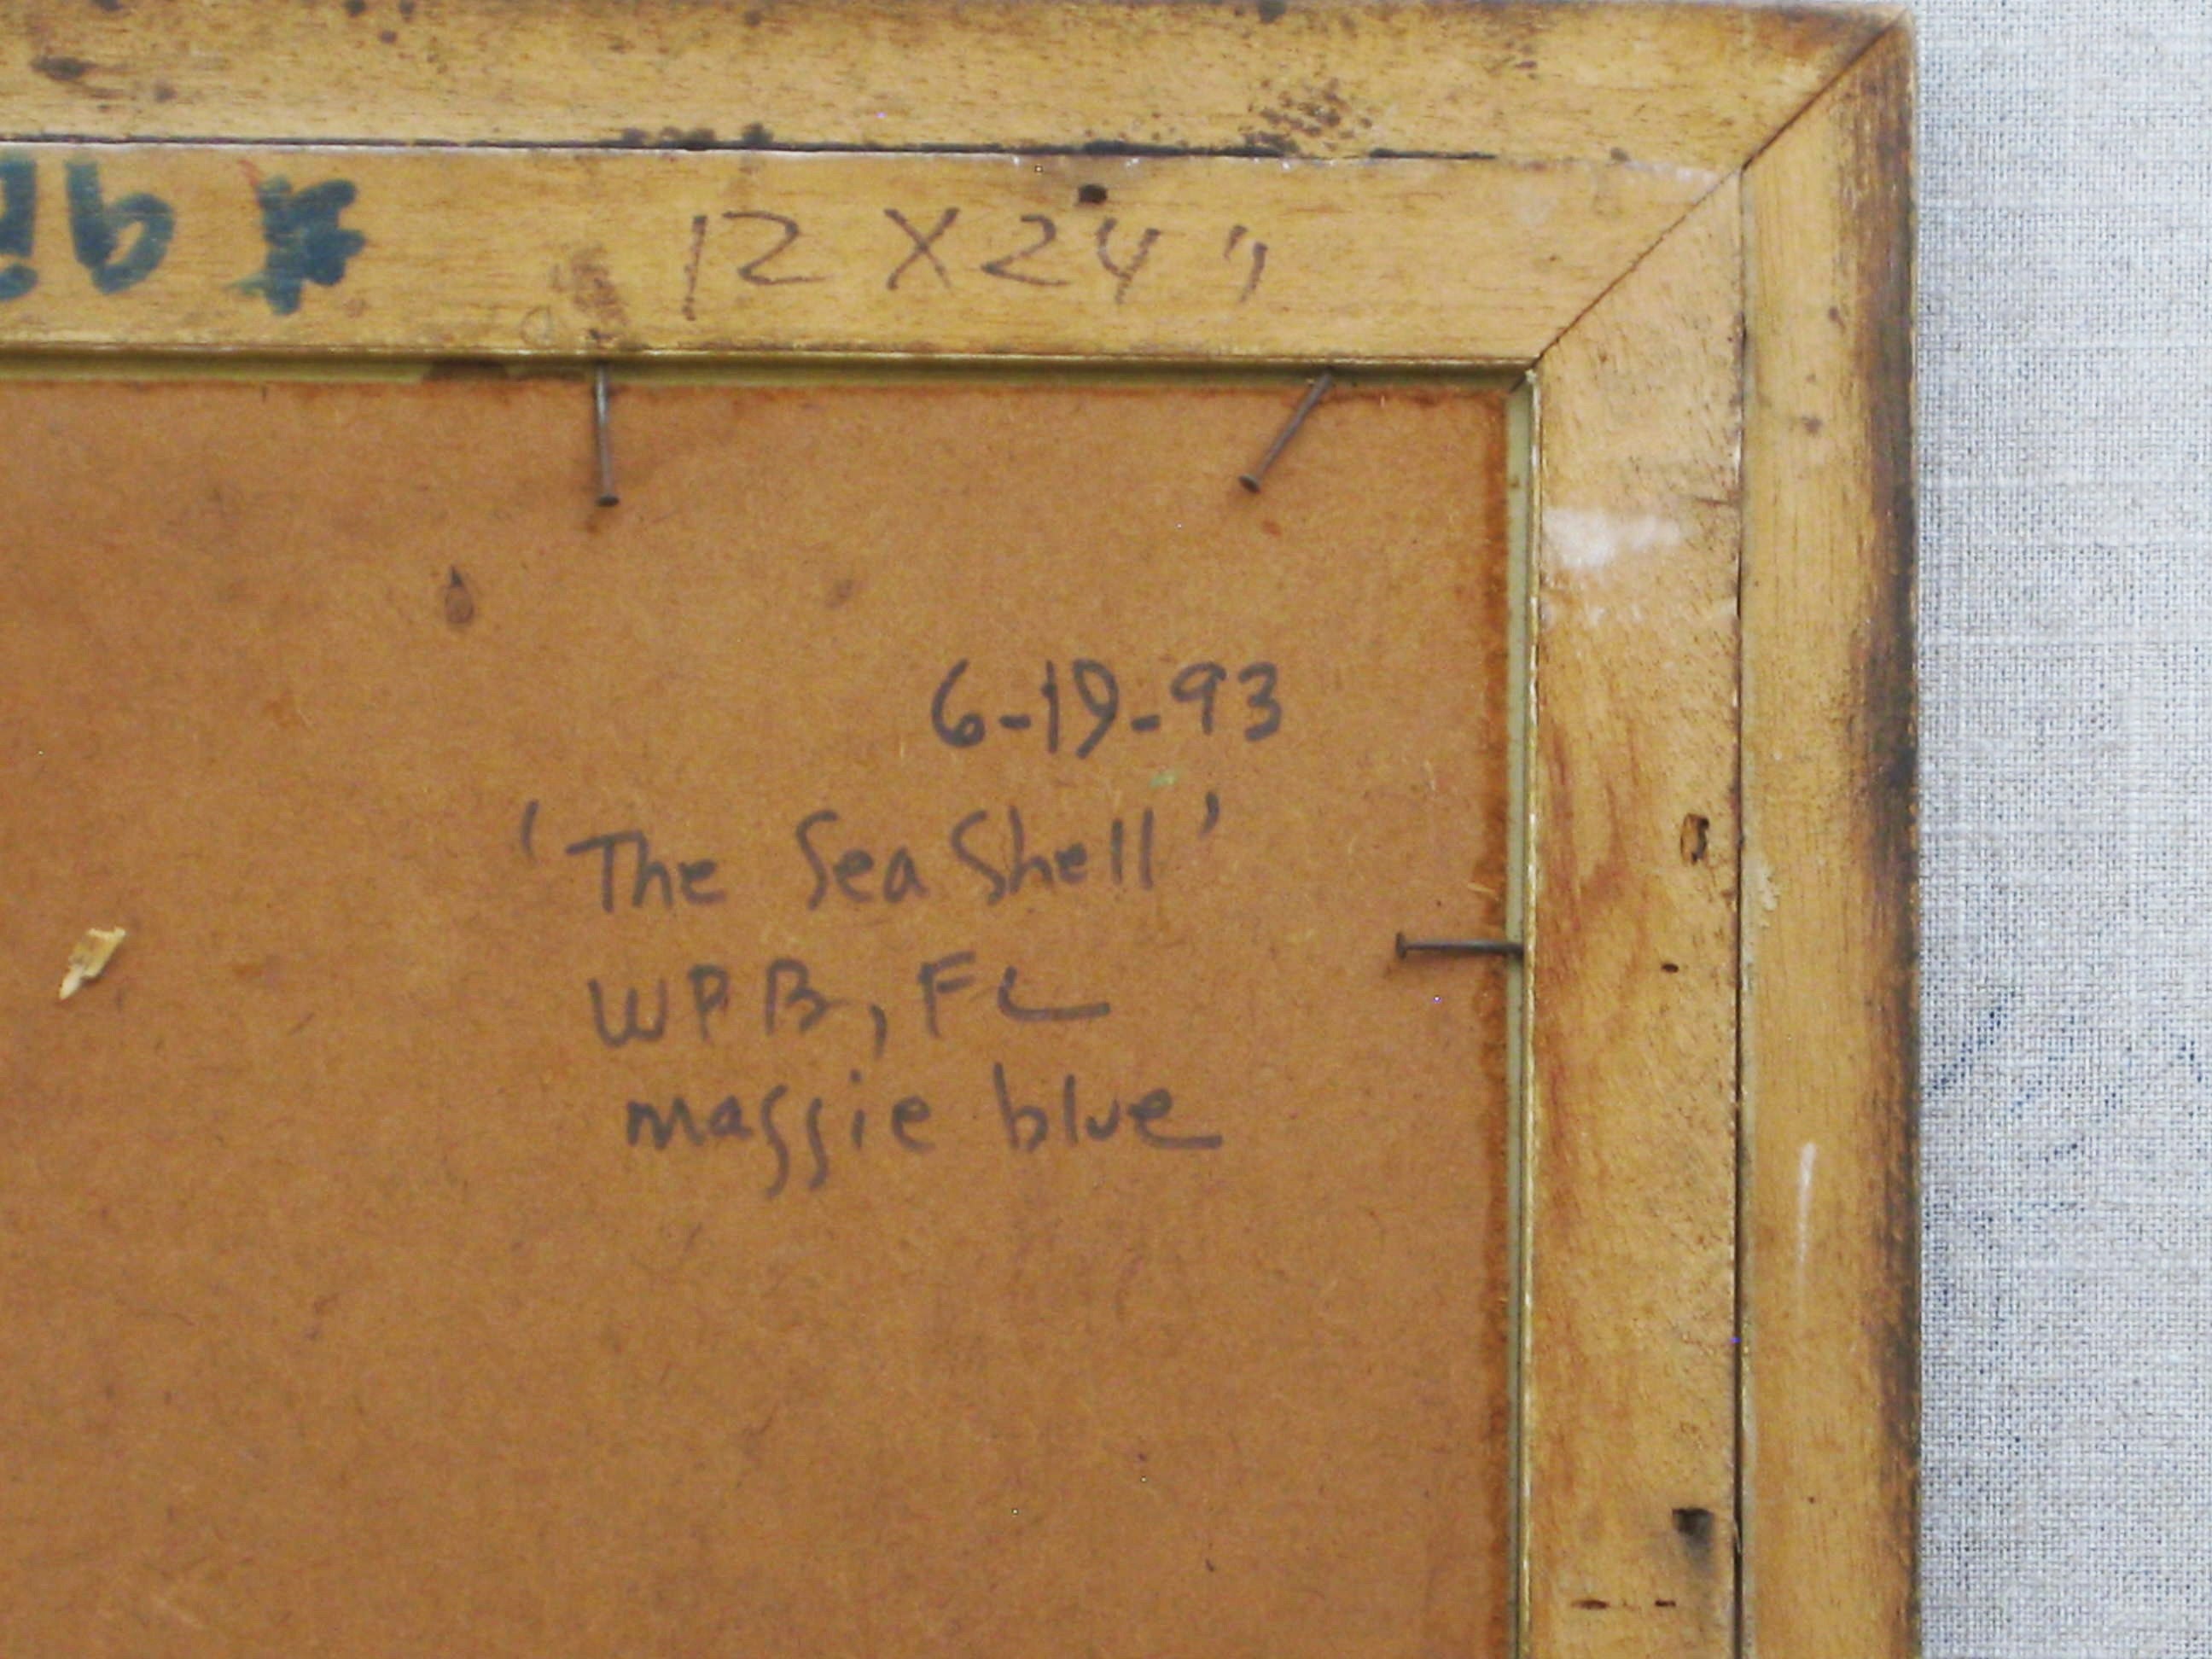 12 X 24"
6-19-93
'The Sea Shell'
WPB, FL
maggie blue